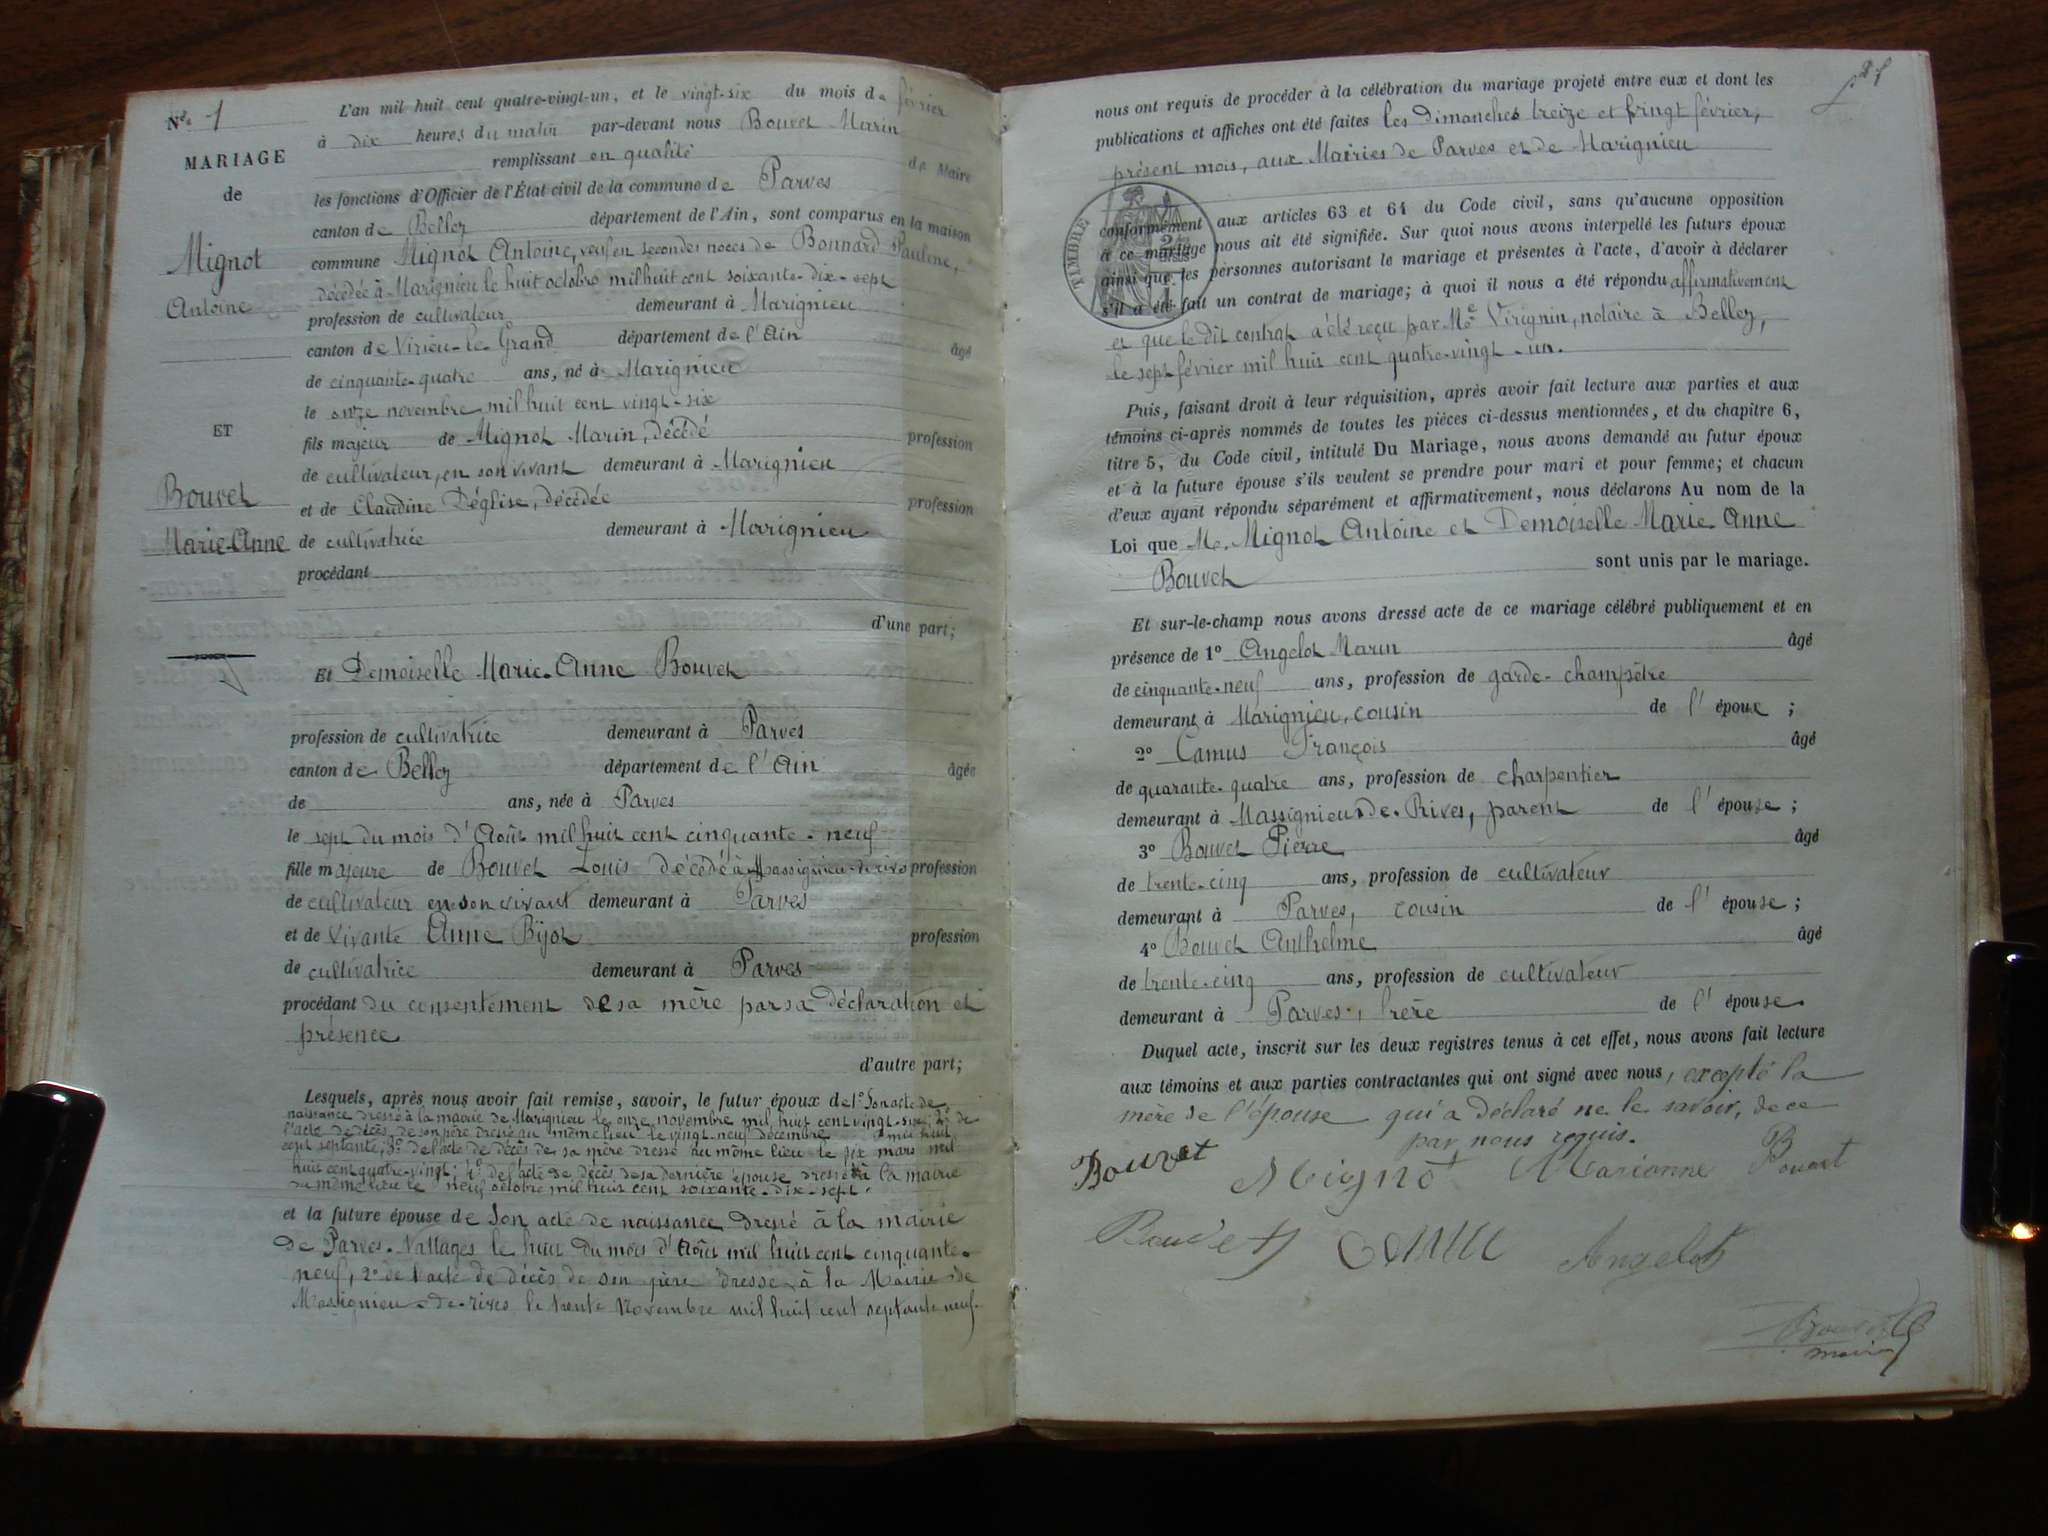 Nº 1
MARIAGE
de
Mignot
Antoine
ET
Bouvet
Marie-Anne
L'an mil huit cent quatre-vingt-un, et le vingt-six du mois de février
à dix heures du matin par-devant nous Bouvet Marin
remplissant en qualité de Maire
les fonctions d'Officier de l'État civil de la commune de Parves
canton de Belley département de l'Ain, sont comparus en la maison
commune Mignot Antoine, veuf en secondes noces de Bonnard Pauline,
décédée à Marignieu le huit octobre mil huit cent soixante-dix-sept
profession de cultivateur demeurant à Marignieu
canton de Virieu-le-Grand département de l'Ain âgé
de cinquante-quatre ans, né à Marignieu
le onze novembre mil huit cent vingt-six
fils majeur de Mignot Marin, décédé profession
de cultivateur, en son vivant demeurant à Marignieu
et de Claudine Déglise, décédée profession
de cultivatrice demeurant à Marignieu
procédant
d'une part;
Et Demoiselle Marie-Anne Bouvet
profession de cultivatrice demeurant à Parves
canton de Belley département de l'Ain âgée
de ans, née à Parves
le sept du mois d'Août mil huit cent cinquante-neuf
fille majeure de Bouvet Louis décédé à Massignieu-de-rives profession
de cultivateur en son vivant demeurant à Parves
et de vivante Anne Bijot profession
de cultivatrice demeurant à Parves
procédant du consentement de sa mère par sa déclaration et
présence
d'autre part;
Lesquels, après nous avoir fait remise, savoir, le futur époux de 1º son acte de
naissance dressé à la mairie de Marignieu le onze novembre mil huit cent vingt-six; 2º de
l'acte de décès de son père dressé au même lieu le vingt-neuf décembre mil huit
cent septante, 3º de l'acte de décès de sa mère dressé au même lieu le six mars mil
huit cent quatre-vingt; 4º de l'acte de décès de sa dernière épouse dressé à la mairie
du même lieu le neuf octobre mil huit cent soixante-dix-sept.
et la future épouse de son acte de naissance dressé à la mairie
de Parves-Nattages le huit du mois d'Août mil huit cent cinquante-
neuf, 2º de l'acte de décès de son père dressé à la Mairie de
Massignieu-de-rives le trente Novembre mil huit cent septante neuf.
nous ont requis de procéder à la célébration du mariage projeté entre eux et dont les
publications et affiches ont été faites les dimanches treize et vingt février,
présent mois, aux Mairies de Parves et de Marignieu
TIMBRE
conformément aux articles 63 et 64 du Code civil, sans qu'aucune opposition
à ce mariage nous ait été signifiée. Sur quoi nous avons interpellé les futurs époux
ainsi que les personnes autorisant le mariage et présentes à l'acte, d'avoir à déclarer
s'il a été fait un contrat de mariage; à quoi il nous a été répondu affirmativement
et que le dit contrat a été reçu par Me Virignin, notaire à Belley,
le sept février mil huit cent quatre-vingt-un.
Puis, faisant droit à leur réquisition, après avoir fait lecture aux parties et aux
témoins ci-après nommés de toutes les pièces ci-dessus mentionnées, et du chapitre 6,
titre 5, du Code civil, intitulé Du Mariage, nous avons demandé au futur époux
et à la future épouse s'ils veulent se prendre pour mari et pour femme; et chacun
d'eux ayant répondu séparément et affirmativement, nous déclarons Au nom de la
Loi que Mr. Mignot Antoine et Demoiselle Marie Anne
Bouvet sont unis par le mariage.
Et sur-le-champ nous avons dressé acte de ce mariage célébré publiquement et en
présence de 1º Angelot Marin âgé
de cinquante-neuf ans, profession de garde-champêtre
demeurant à Marignieu, cousin de l'époux;
2º Camus François âgé
de quarante-quatre ans, profession de charpentier
demeurant à Massignieu-de-Rives, parent de l'épouse;
3º Bouvet Pierre âgé
de trente-cinq ans, profession de cultivateur
demeurant à Parves, cousin de l'épouse;
4º Bouvet Anthelme âgé
de trente-cinq ans, profession de cultivateur
demeurant à Parves, frère de l'épouse
Duquel acte, inscrit sur les deux registres tenus à cet effet, nous avons fait lecture
aux témoins et aux parties contractantes qui ont signé avec nous, excepté la
mère de l'épouse qui a déclaré ne le savoir, de ce
par nous requis.
Bouvet Mignot Marianne Bouvet
Bouvet Camus Angelot
maire